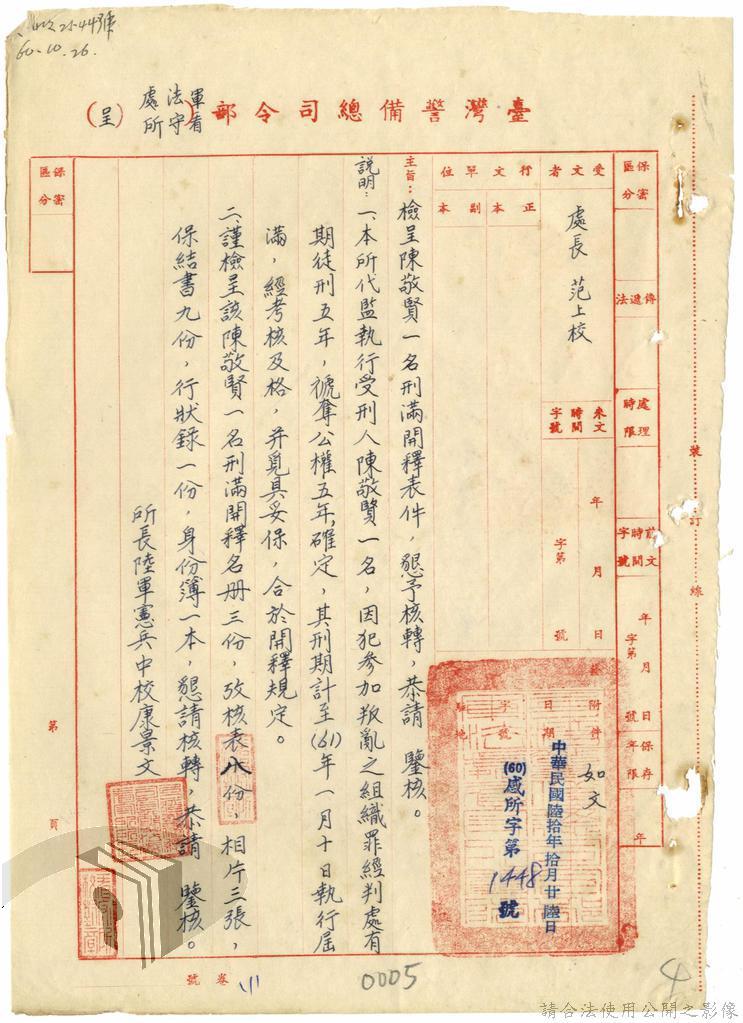 收2544號
60.10.26.
臺灣警備總司令部 軍法處看守所(呈)
保密區分
傳遞法
處理時限
前文時間字號
年月日
字第 號
保存年限
年
受文者
處長 范上校
來文時間字號
年月日
字第 號
行文單位
正本
副本
附件 如文
日期
字號
駐地
中華民國陸拾年拾月廿陸日
(60)感所字第1448號
主旨:檢呈陳敬賢一名刑滿開釋表件,懇予核轉,恭請 鑒核。
說明:一、本所代監執行受刑人陳敬賢一名,因犯參加叛亂之組織罪經判處有
期徒刑五年,褫奪公權五年,確定,其刑期計至(61)年一月十日執行屆
滿,經考核及格,并覓具妥保,合於開釋規定。
二、謹檢呈該陳敬賢一名刑滿開釋名册三份,攷核表八份,相片三張,
保結書九份,行狀錄一份,身份簿一本,懇請核轉,恭請 鑒核。
所長陸軍憲兵中校康景文
保密區分
第 頁
裝訂線
卷號
0005
4
請合法使用公開之影像